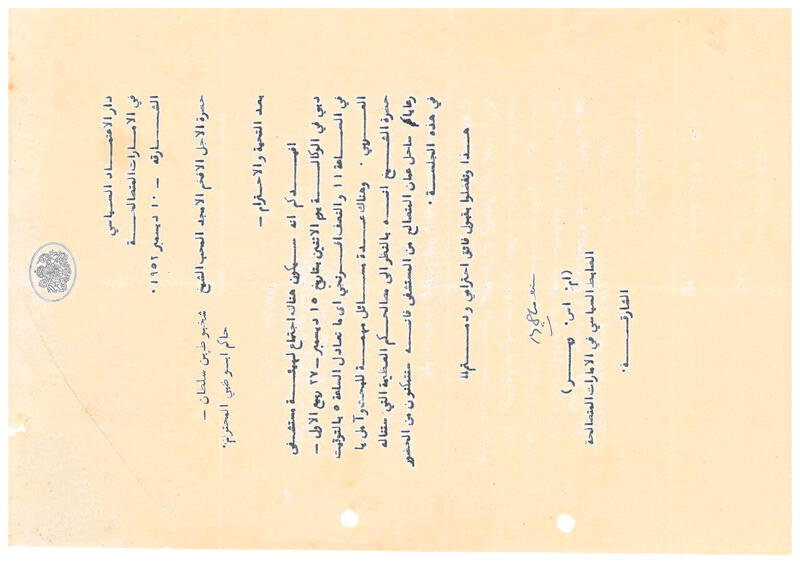 دار الاعتماد السياسي
في الامارات المتصالحة
الشارقه - ١٠ ديسمبر ١٩٥٢.
حضرة الاجل الافخم الامجد المحب الشيخ شخبوط بن سلطان -
حاكم ابوظبي المحترم.
بعد التحية والاحترام -
افيدكم انه سيكون هناك اجتماع لهيئة مستشفى
دبي في الوكالة يوم الاثنين بتاريخ ١٥ ديسمبر - ٢٧ ربيع الاول -
في الساعة ١١ والنصف افرنجي اي ما تعادل الساعة ٥ بالتوقيت
العربي. وهناك عدة مسائل مهمة للبحث وآمل يا
حضرة الشيخ انه بالنظر الى مصالحكم العظيمة التي ستناله
رعاياكم ساحل عمان المتصالح من المستشفى فانه ستتمكنون من الحضور
في هذه الجلسة.
هذا وتفضلوا بقبول فائق احترامي ودمتم،،
(ام. اس. وير)
الضابط السياسي في الامارات المتصالحة
الشارقة.